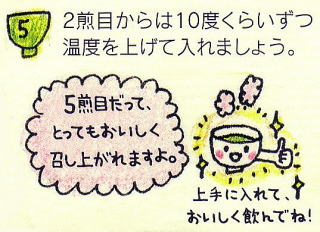 5
2煎目からは10度くらいずつ
温度を上げて入れましょう。
5煎目だって、
とってもおいしく
召し上がれますよ。
上手に入れて、
おいしく飲んでね!